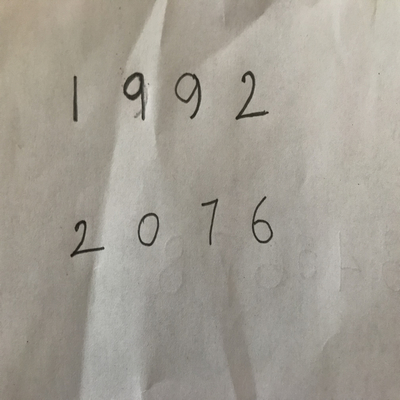 1992
2076